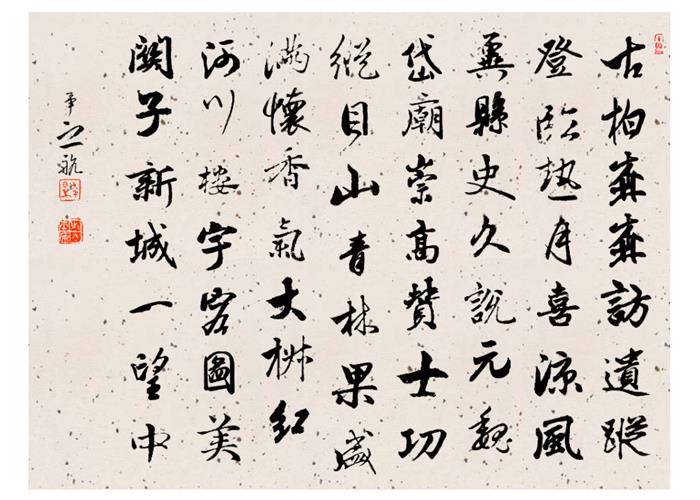 古柏森森訪遺蹤
登臨熱月喜涼風
縣史久說元魏
岱廟崇高贊士功
縱目山青林果盛
滿懷香氣大椒紅
河川樓宇圖美
子新城一望中